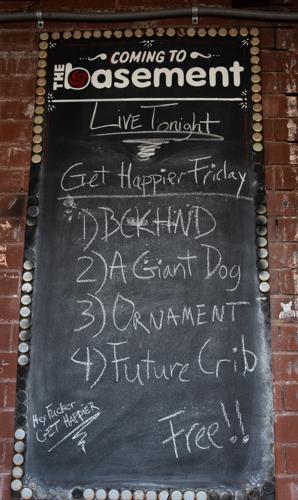 COMING TO
THE basement
Live Tonight
Get Happier Friday
1) BCKHND
2) A Giant Dog
3) ORNAMENT
4) Future Crib
Hey Fucker
GET HAPPIER
Free!!